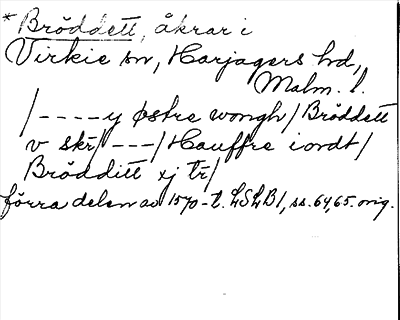 * Bröddett, åkrar i
Virkie sn, Harjagers hd,
Malm. l.
/----y østre wongh/ Bröddett
v skr/ ---/ Hauffre iordt/
Brödditt xj tr/
förra delen av 1570-t. LSLB1, ss. 64,65. orig.